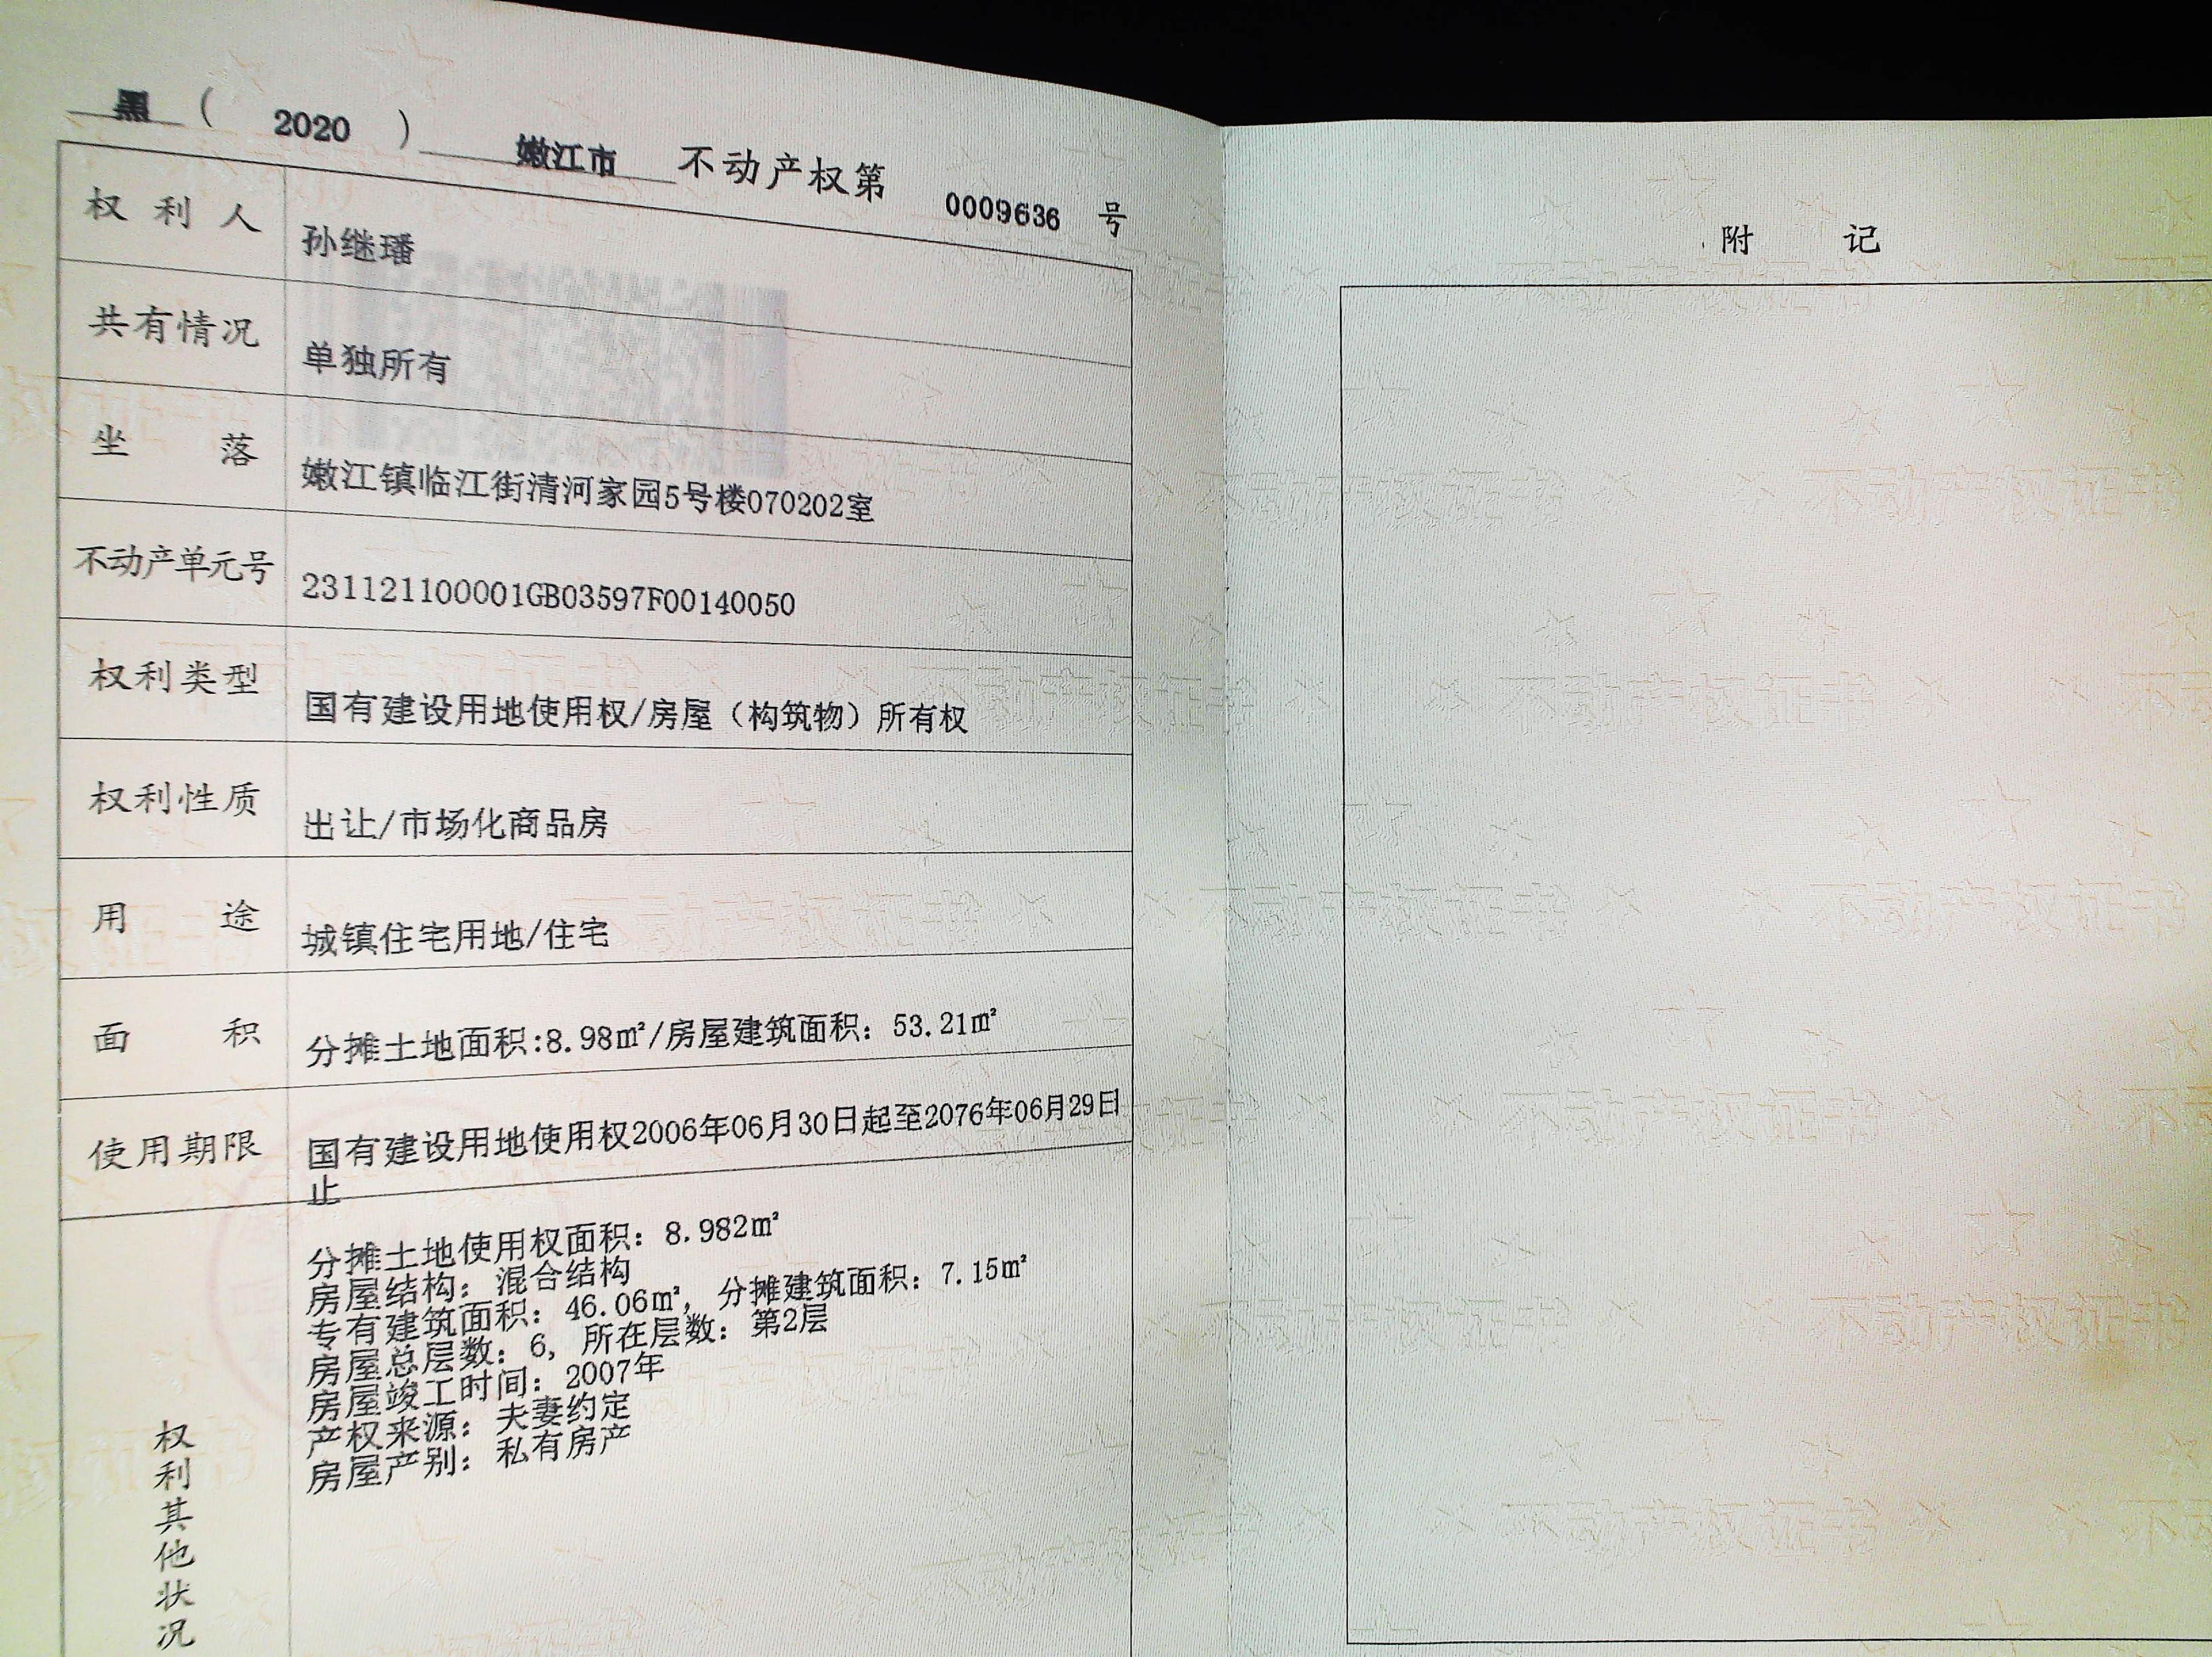 黑 （ 2020 ） 嫩江市 不动产权第 0009636 号
权利人 孙继璠
共有情况 单独所有
坐落 嫩江镇临江街清河家园5号楼070202室
不动产单元号 231121100001GB03597F00140050
权利类型 国有建设用地使用权/房屋（构筑物）所有权
权利性质 出让/市场化商品房
用途 城镇住宅用地/住宅
面积 分摊土地面积:8.98㎡/房屋建筑面积：53.21㎡
使用期限 国有建设用地使用权2006年06月30日起至2076年06月29日
止
权利其他状况
分摊土地使用权面积：8.982㎡
房屋结构：混合结构
专有建筑面积：46.06㎡，分摊建筑面积：7.15㎡
房屋总层数：6，所在层数：第2层
房屋竣工时间：2007年
产权来源：夫妻约定
房屋产别：私有房产
附记